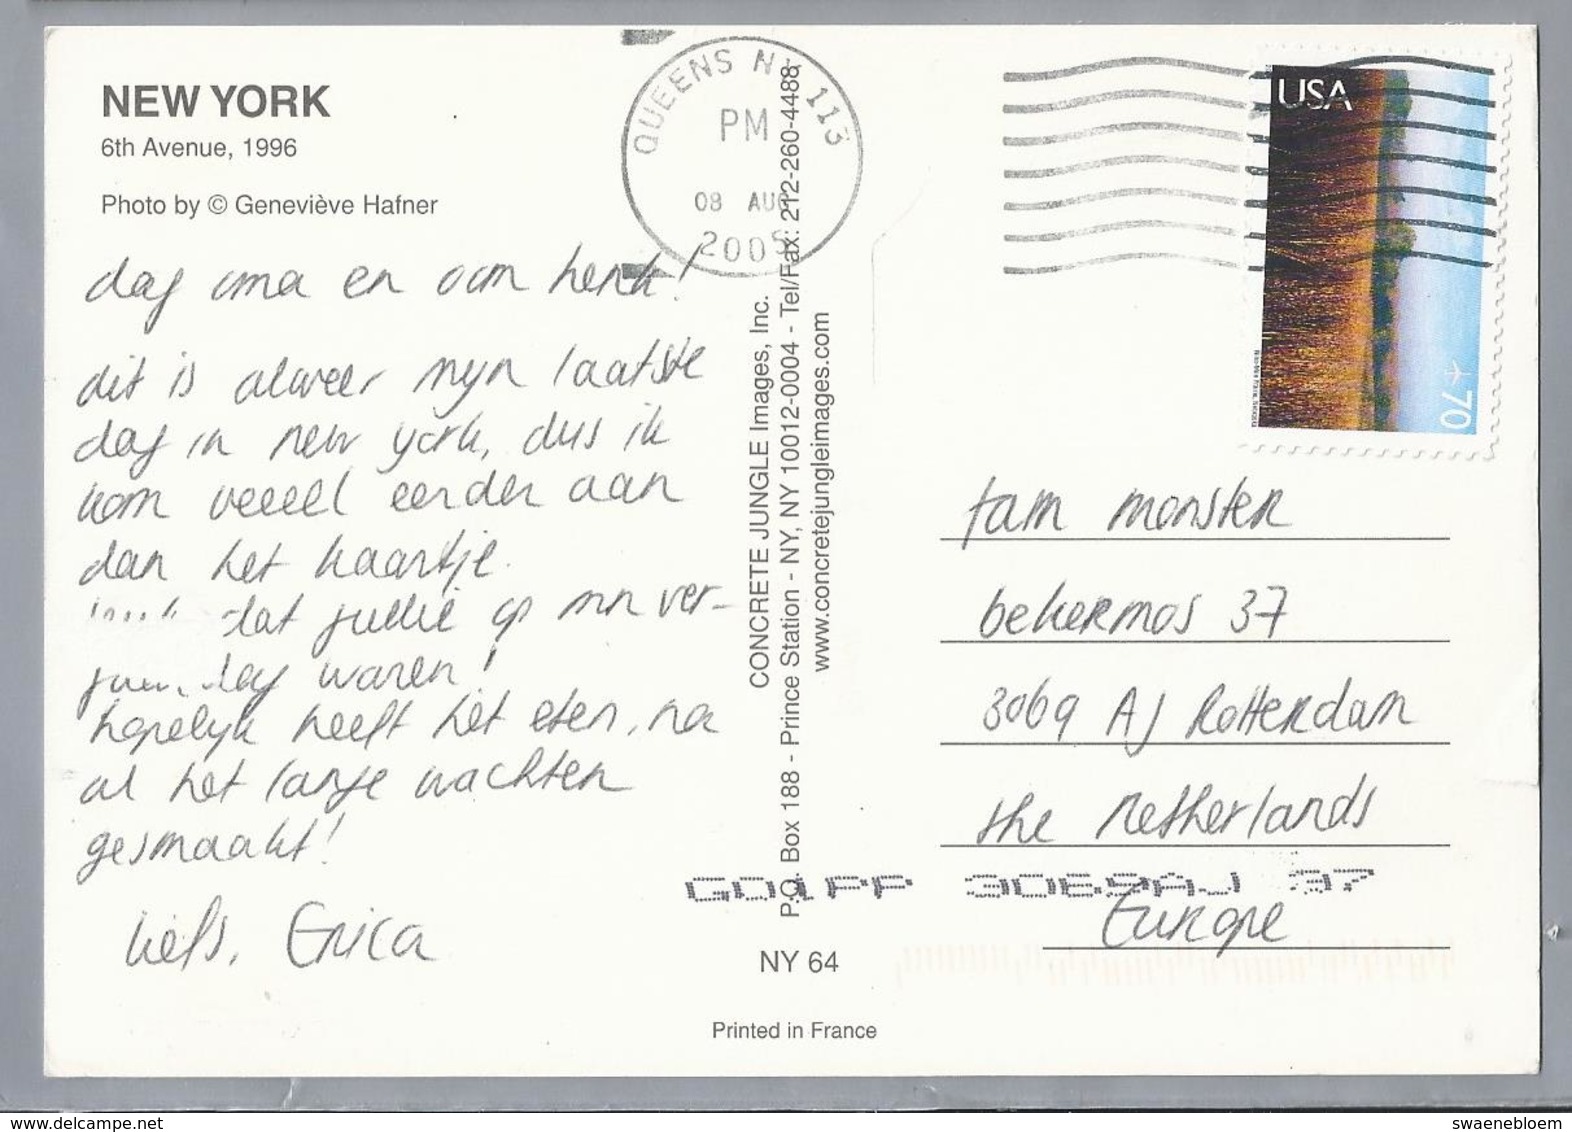 NEW YORK
6th Avenue, 1996
Photo by © Geneviève Hafner
dag oma en oom henk!
dit is alweer mijn laatste
dag in new york, dus ik
kom veeeel eerder aan
dan het kaartje.
dat jullie op mn ver-
dag waren!
hopelijk heeft het eten, na
al het lange wachten
gesmaakt!
liefs, Erica
QUEENS NY 113
PM
08 AUG
2005
CONCRETE JUNGLE Images, Inc.
P.O. Box 188 - Prince Station - NY, NY 10012-0004 - Tel/Fax: 212-260-4488
www.concretejungleimages.com
NY 64
Printed in France
USA
70
fam monster
bekermos 37
3069 AJ Rotterdam
the netherlands
Europe
GD1PP 3069AJ 37
delcampe.net
swaenebloem